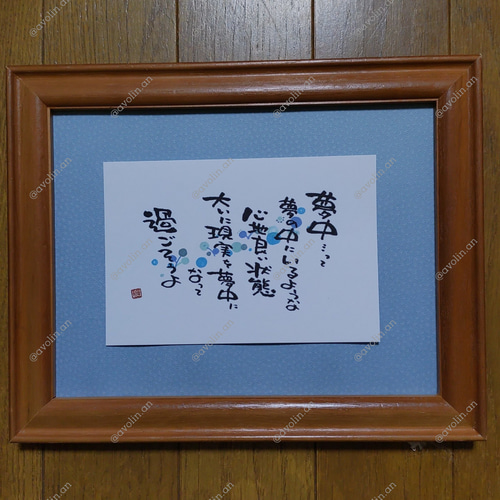 夢中…って
夢の中にいるような
心地良い状態
大いに現実を夢中に
なって
過ごそうよ
@avolin.an